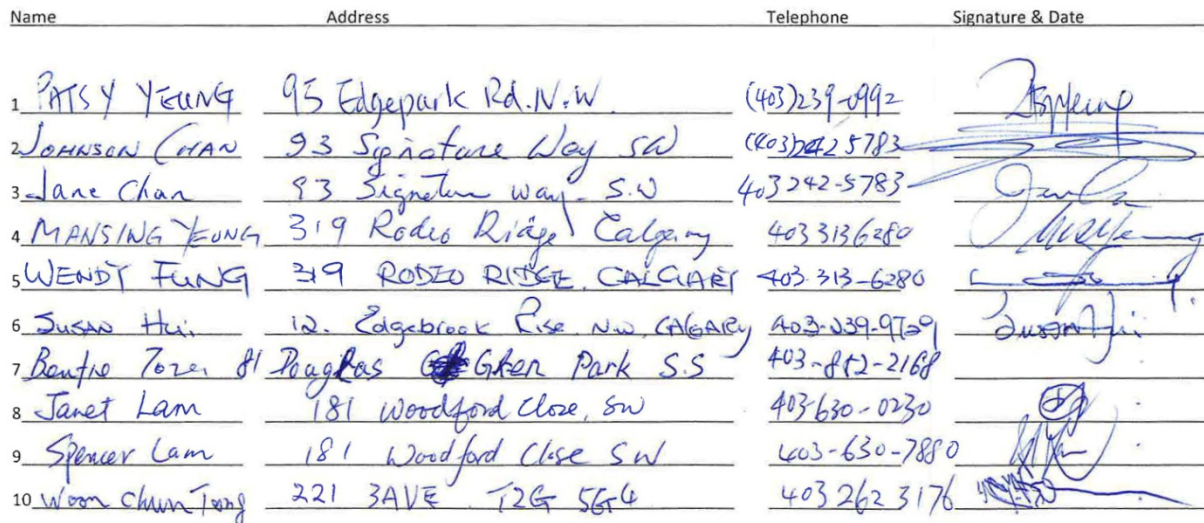 Name Address Telephone Signature & Date
1 PATSY YEUNG 95 Edgepark Rd. N.W. (403)239-0992
2 JOHNSON CHAN 93 Signature Way SW (403)242 5783
3 Jane Chan 93 Signature way. S.W 403 242-5783
4 MANSING YEUNG 319 Rodeo Ridge Calgary 403 313 6280
5 WENDY FUNG 319 RODEO RIDGE, CALGARY 403-313-6280
6 SUSAN Hui. 12. Edgebrook Rise. N.W. CALGARY 403-239-9729 Susan Hui
7 81 Douglas Glen Park S.S 403-852-2168
8 Janet Lam 181 Woodford Close, SW 403-630-0230
9 Spencer Lam 181 Woodford Close SW 403-630-7880
10 Woon Chun Tong 221 3AVE T2G 5G4 403 262 3176